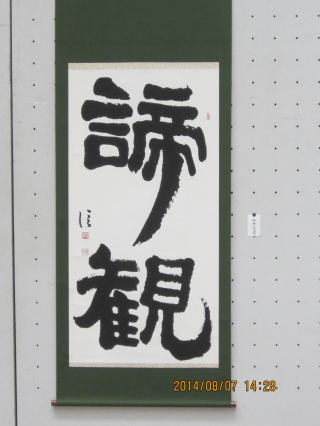 諦
観
2014/08/07 14:28